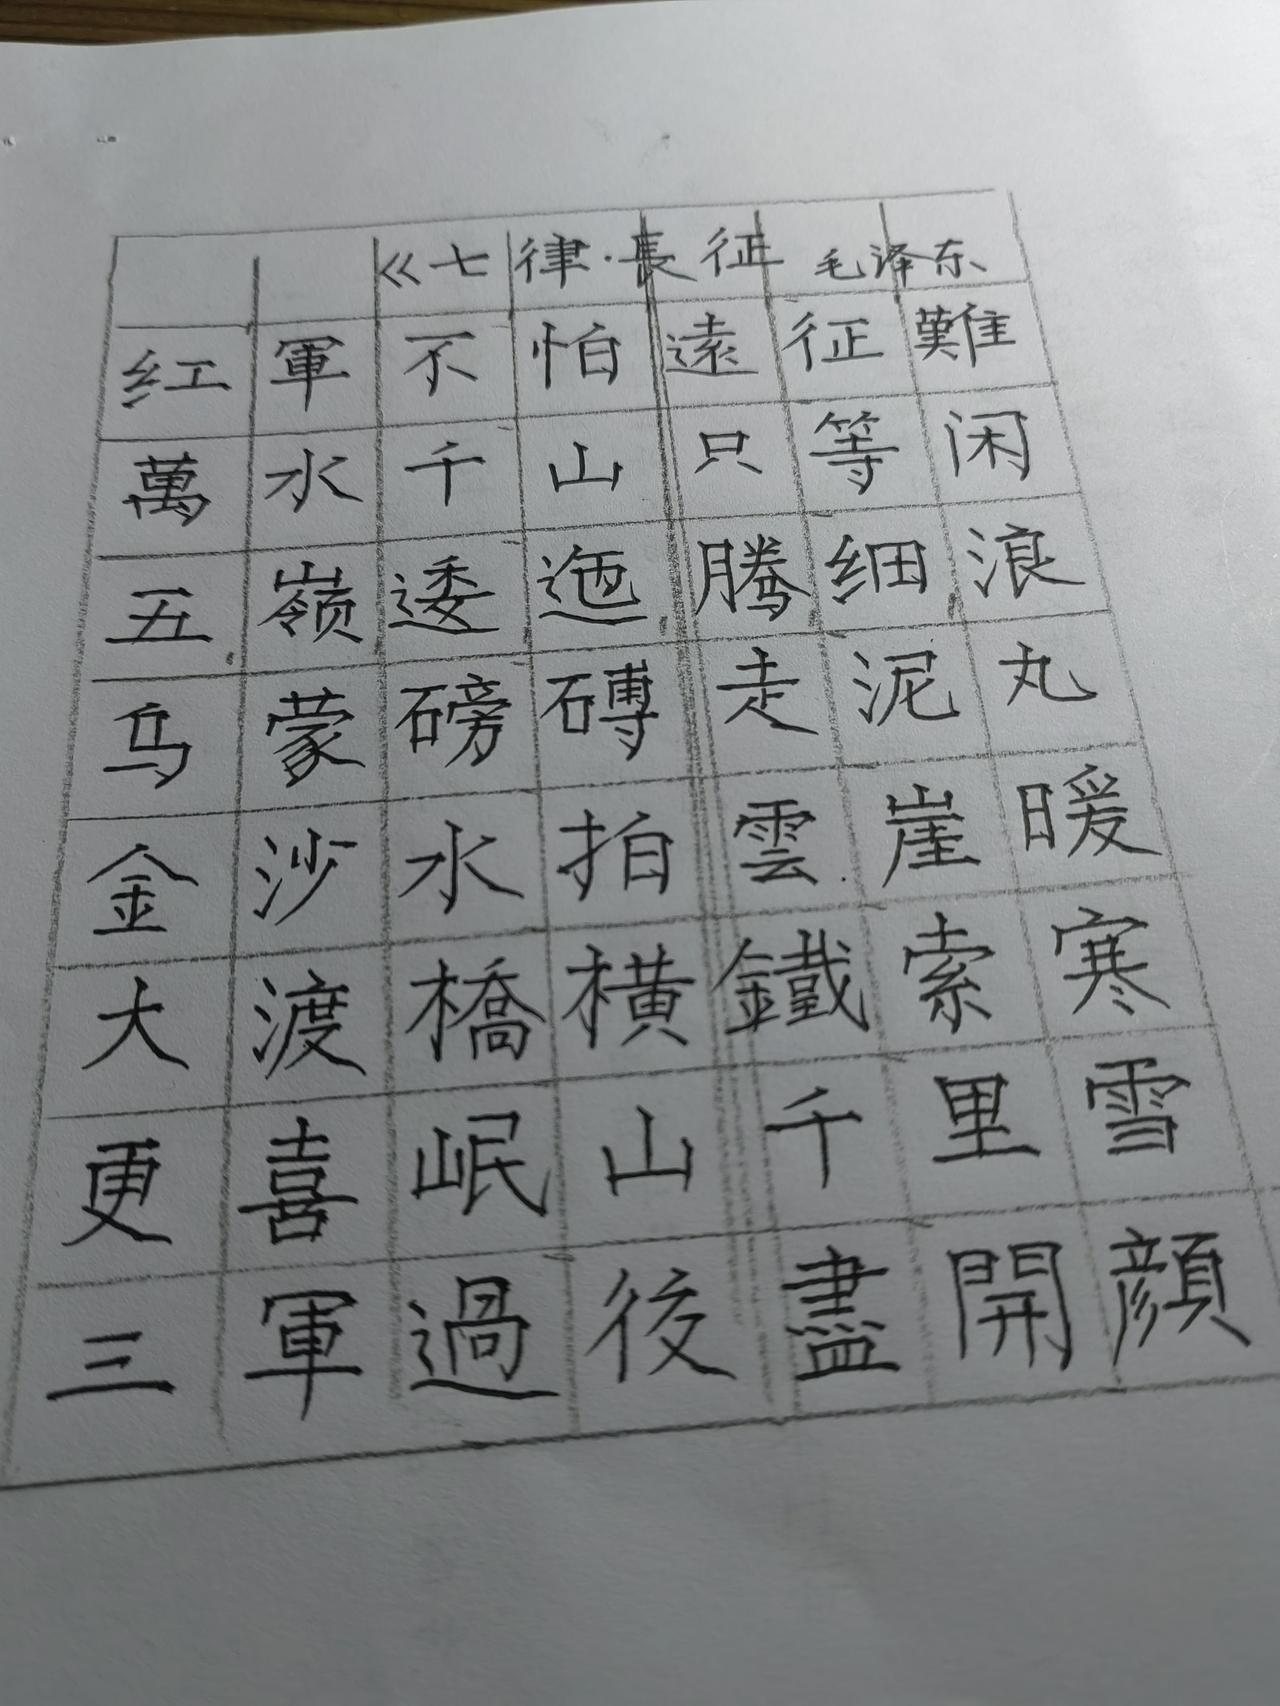 《七律·長征 毛泽东
红軍不怕遠征難
萬水千山只等闲
五嶺逶迤腾细浪
乌蒙磅礴走泥丸
金沙水拍雲崖暖
大渡橋横鐵索寒
更喜岷山千里雪
三軍過後盡開顔